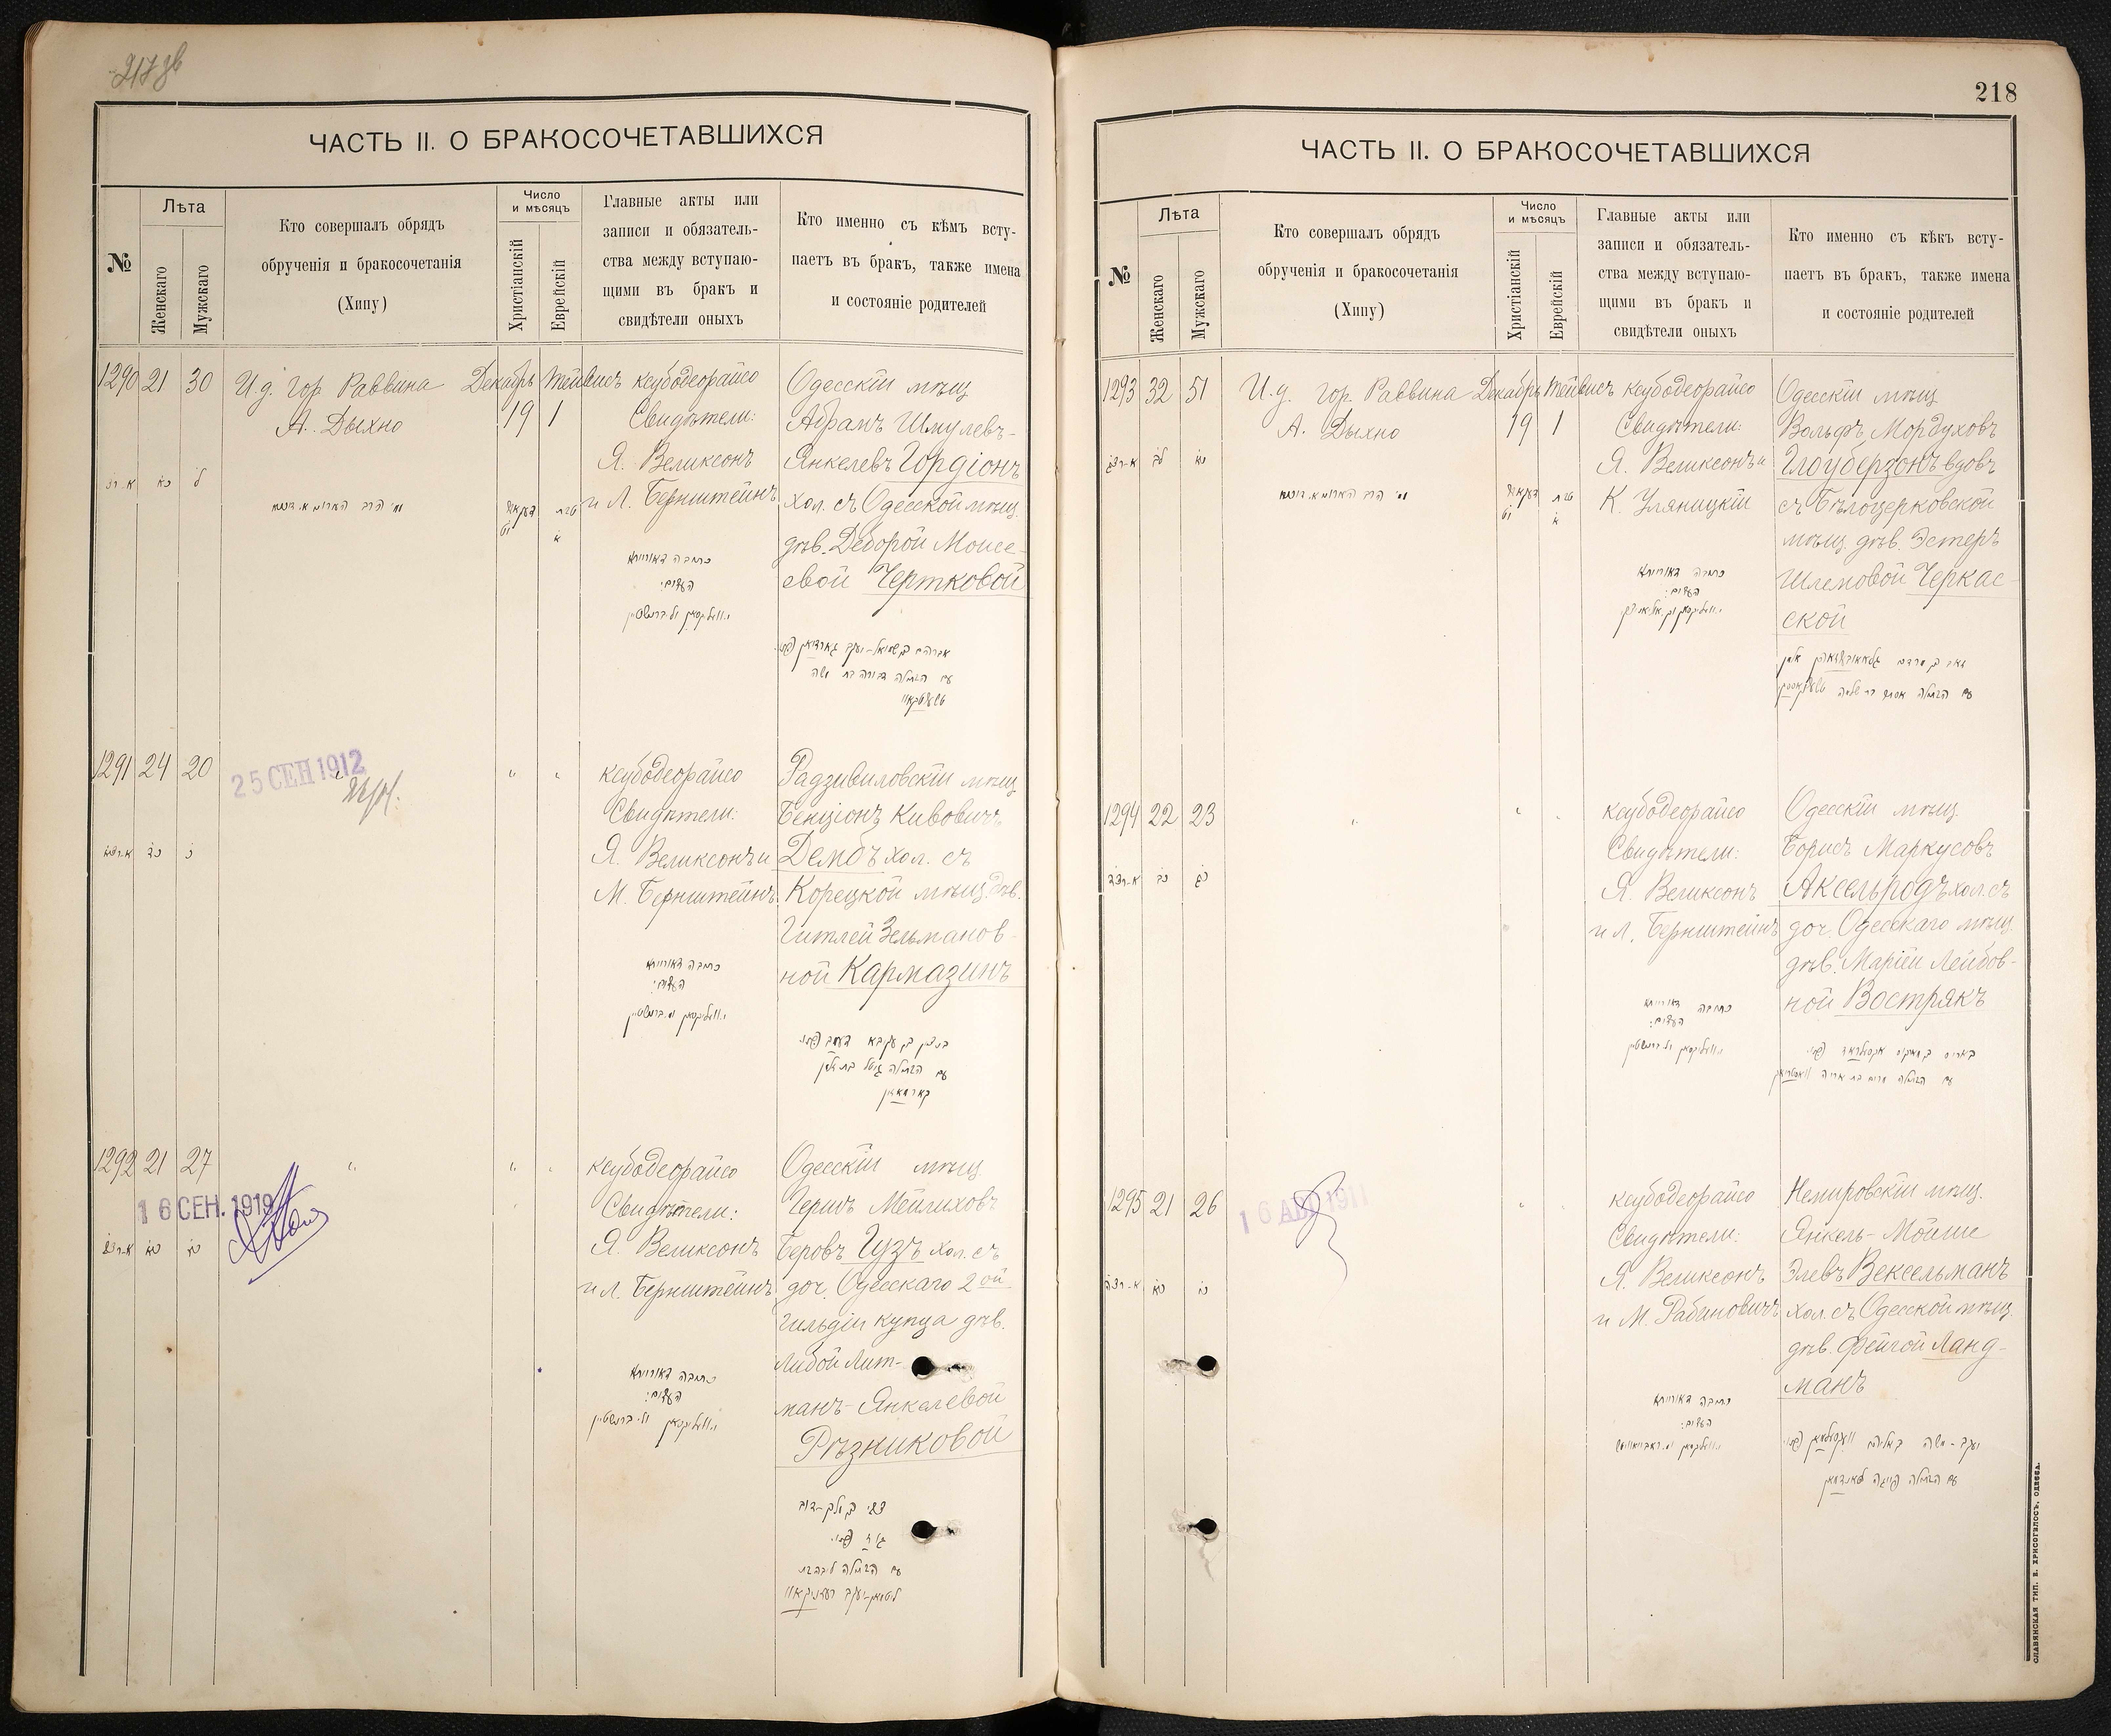 217 об
ЧАСТЬ II. О БРАКОСОЧЕТАВШИХСЯ
№
Лѣта
Женскаго
Мужскаго
Кто совершалъ обрядъ
обрученія и бракосочетанія
(Хипу)
Число
и мѣсяцъ
Христіанскій
Еврейскій
Главные акты или
записи и обязатель-
ства между вступаю-
щими въ бракъ и
свидѣтели оныхъ
Кто именно съ кѣмъ всту-
паетъ въ бракъ, также имена
и состояніе родителей
1290 21 30
И.д. гор. Раввина
А. Дыхно
Декабрь Тейвисъ
19 1
ксубодеорайсо
Свидѣтели:
Я. Великсонъ
и Л. Бернштейнъ
Одесскій мѣщ
Абрамъ Шмулевъ-
Янкелевъ Гордіонъ
хол. съ Одесской мѣщ.
дѣв. Деборой Моисе-
евой Чертковой
כתובה דאורייתא
העדים:
אברהם בן שמואל-יעקב גארדיאן פנוי
עם הבתולה דבורה בת משה
טשערטקאוו
1291 24 20
25 СЕН 1912
" "
ксубодеорайсо
Свидѣтели:
Я. Великсонъ и
М. Бернштейнъ.
Радзивиловскій мѣщ
Бенціонъ Кивовичъ
Дембъ хол. съ
Корецкой мѣщ. дѣв.
Гитлей Зельманов-
ной Кармазинъ
כתובה דאורייתא
העדים:
בנציון בן עקיבא דעמב פנוי
עם הבתולה גיטל בת זלמן
קארמאזין
1292 21 27
"
16 СЕН. 1919
" "
ксубодеорайсо
Свидѣтели:
Я. Великсонъ
и Л. Бернштейнъ
Одесскій мѣщ
Гершъ Мейлиховъ
Беровъ Гузъ хол. съ
доч. Одесскаго 2ой
гильдіи купца дѣв.
Либой Лит-
манъ-Янкелевой
Рѣзниковой
כתובה דאורייתא
העדים:
גוז פנוי
עם הבתולה ליבה בת
ליטמאן-יעקב רעזניקאוו
218
ЧАСТЬ II. О БРАКОСОЧЕТАВШИХСЯ
№
Лѣта
Женскаго
Мужскаго
Кто совершалъ обрядъ
обрученія и бракосочетанія
(Хипу)
Число
и мѣсяцъ
Христіанскій
Еврейскій
Главные акты или
записи и обязатель-
ства между вступаю-
щими въ бракъ и
свидѣтели оныхъ
Кто именно съ кѣкъ всту-
паетъ въ бракъ, также имена
и состояніе родителей
1293 32 51
И.д. гор. Раввина
А. Дыхно
Декабрь Тейвисъ
19 1
ксубодеорайсо
Свидѣтели:
Я. Великсонъ и
К. Уляницкій
Одесскій мѣщ
Вольфъ Мордуховъ
Глоуберзонъ вдовъ
съ Бѣлоцерковской
мѣщ. дѣв. Эстеръ
Шлемовой Черкас-
ской
כתובה דאורייתא
העדים:
1294 22 23
"
" "
ксубодеорайсо
Свидѣтели:
Я. Великсонъ
и Л. Бернштейнъ
Одесскій мѣщ.
Борисъ Маркусовъ
Аксельродъ хол. съ
доч. Одесскаго мѣщ.
дѣв. Маріей Лейбов-
ной Вострякъ
כתובה דאורייתא
העדים:
1295 21 26
16 АВГ 1911
" "
ксубодеорайсо
Свидѣтели:
Я. Великсонъ
и М. Рабиновичъ
Немировскій мѣщ.
Янкель-Мойше
Элевъ Вексельманъ
хол. съ Одесской мѣщ.
дѣв. Фейгой Ланд-
манъ
כתובה דאורייתא
העדים:
עם הבתולה פייגה לאנדמאן
СЛАВЯНСКАЯ ТИП. Е. ХРИСОГЕЛОСЪ, ОДЕССА.